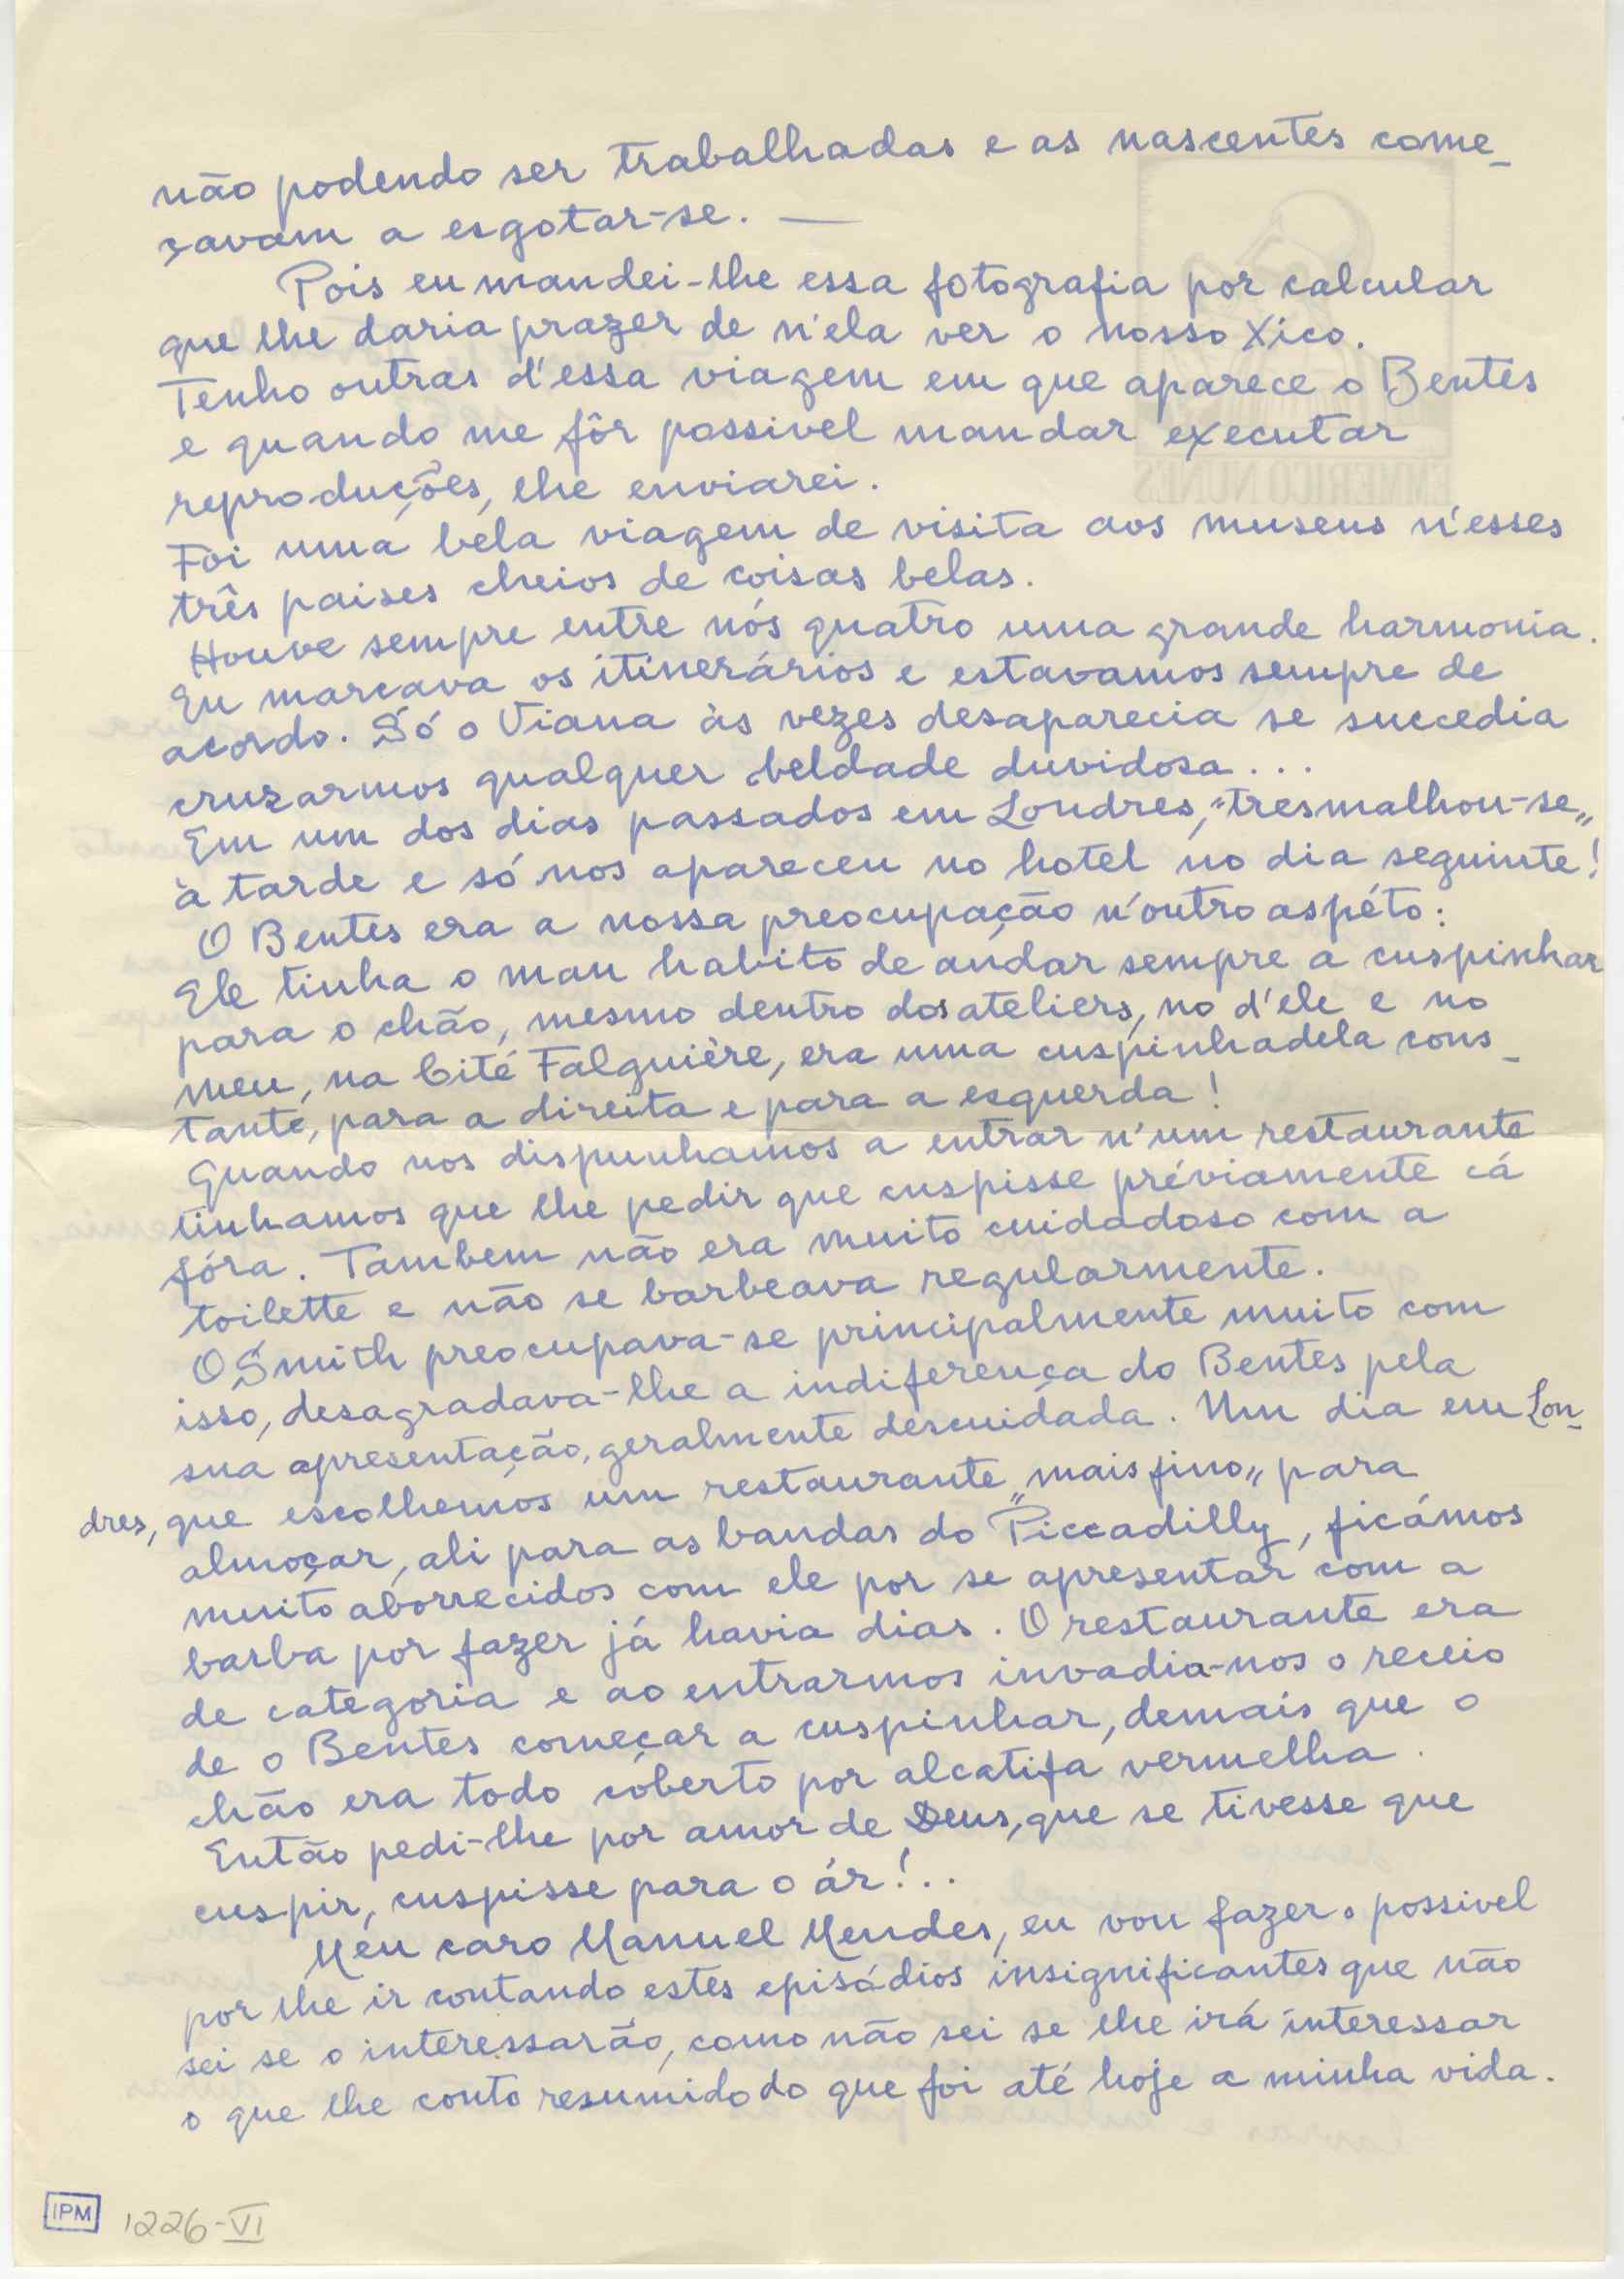 não podendo ser trabalhadas e as nascentes come-
çavam a esgotar-se. —
Pois eu mandei-lhe essa fotografia por calcular
que lhe daria prazer de n'ela ver o nosso Xico.
Tenho outras d'essa viagem em que aparece o Bentes
e quando me fôr possivel mandar executar
reproduções, lhe enviarei.
Foi uma bela viagem de visita aos museus n'esses
três paises cheios de coisas belas.
Houve sempre entre nós quatro uma grande harmonia.
Eu marcava os itinerários e estavamos sempre de
acordo. Só o Viana às vezes desaparecia se succedia
cruzarmos qualquer beldade duvidosa...
Em um dos dias passados em Londres, "tresmalhou-se"
à tarde e só nos apareceu no hotel no dia seguinte!
O Bentes era a nossa preocupação n'outro aspéto:
Ele tinha o mau habito de andar sempre a cuspinhar
para o chão, mesmo dentro dos ateliers, no d'ele e no
meu, na Cité Falguière, era uma cuspinhadela cons-
tante, para a direita e para a esquerda!
Quando nos dispunhamos a entrar n'um restaurante
tinhamos que lhe pedir que cuspisse préviamente cá
fóra. Tambem não era muito cuidadoso com a
toilette e não se barbeava regularmente.
O Smith preocupava-se principalmente muito com
isso, desagradava-lhe a indiferença do Bentes pela
sua apresentação, geralmente descuidada. Um dia em Lon-
dres, que escolhemos um restaurante "mais fino" para
almoçar, ali para as bandas do Piccadilly, ficámos
muito aborrecidos com ele por se apresentar com a
barba por fazer já havia dias. O restaurante era
de categoria e ao entrarmos invadia-nos o receio
de o Bentes começar a cuspinhar, demais que o
chão era todo coberto por alcatifa vermelha.
Então pedi-lhe por amor de Deus, que se tivesse que
cuspir, cuspisse para o ár!..
Meu caro Manuel Mendes, eu vou fazer o possivel
por lhe ir contando estes episódios insignificantes que não
sei se o interessarão, como não sei se lhe irá interessar
o que lhe conto resumido do que foi até hoje a minha vida.
IPM 1226-VI
EMMERICO NUNES